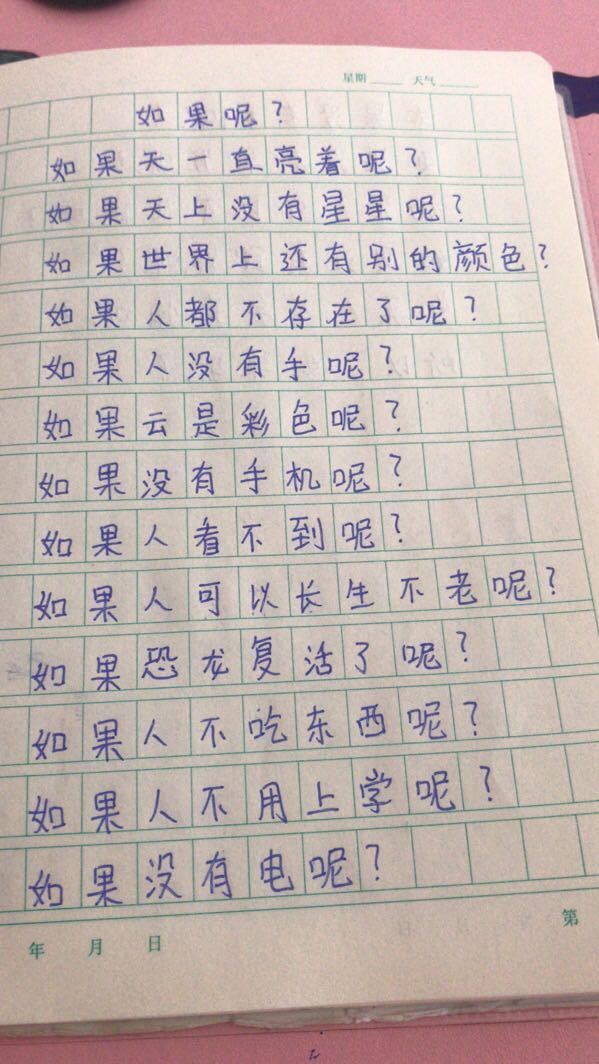 星期 天气
如果呢？
如果天一直亮着呢？
如果天上没有星星呢？
如果世界上还有别的颜色？
如果人都不存在了呢？
如果人没有手呢？
如果云是彩色呢？
如果没有手机呢？
如果人看不到呢？
如果人可以长生不老呢？
如果恐龙复活了呢？
如果人不吃东西呢？
如果人不用上学呢？
如果没有电呢？
年 月 日 第